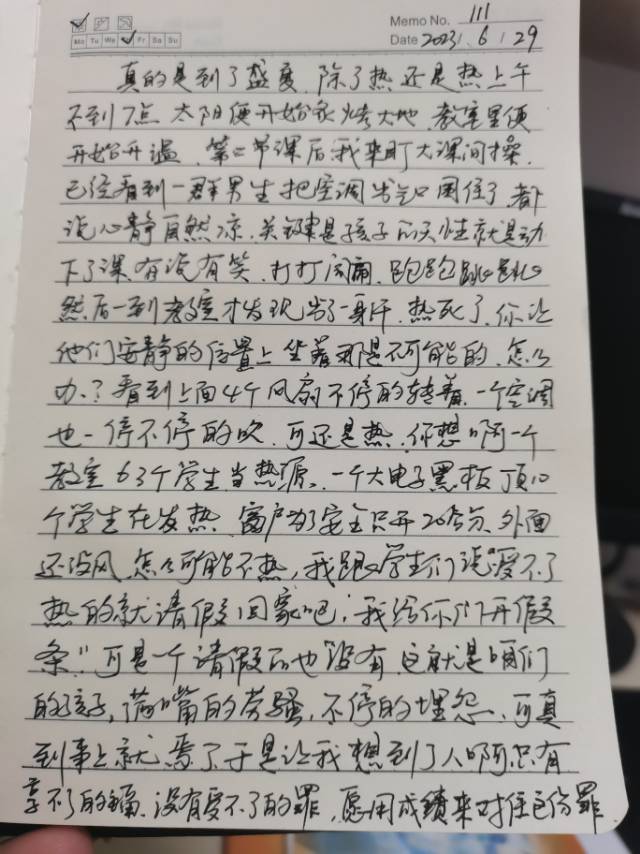 Memo No. 111
Mo Tu We Fr Sa Su
Date 2023.6.29
真的是到了盛夏,除了热还是热上午
不到7点太阳便开始炙烤大地,教室里便
开始升温,第二节课后我来盯大课间操,
已经看到一群男生把空调出气口围住了都
说心静自然凉,关键是孩子的天性就是动
下了课有说有笑,打打闹闹,跑跑跳跳
然后一到教室才发现出了一身汗,热死了,你让
他们安静的位置上坐着那是不可能的,怎么
办?看到上面4个风扇不停的转着,一个空调
也一停不停的吹,可还是热,你想啊一个
教室63个学生当热源,一个大电子黑板顶10
个学生在发热,窗户为了安全只开20公分,外面
还没风,怎么可能不热,我跟学生们说“受不了
热的就请假回家吧,我给你们开假
条”可是一个请假的也没有,这就是咱们
的孩子,满嘴的劳骚,不停的埋怨,可真
到事上就蔫了,于是让我想到了人啊只有
享不了的福,没有受不了的罪,愿用成绩来对住这份罪.